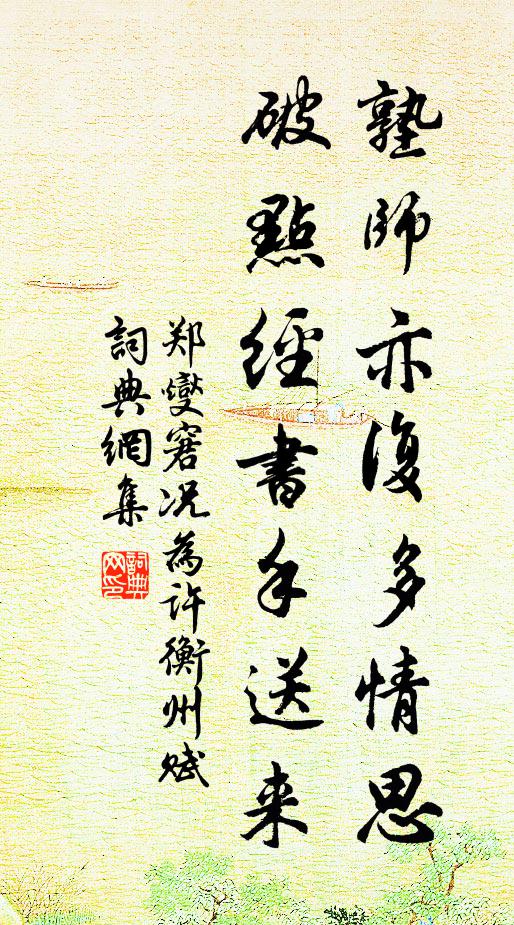 塾師亦復多情思
破點經書手送来
郑燮窘况為许衡州赋
詞典網集
詞典
网印